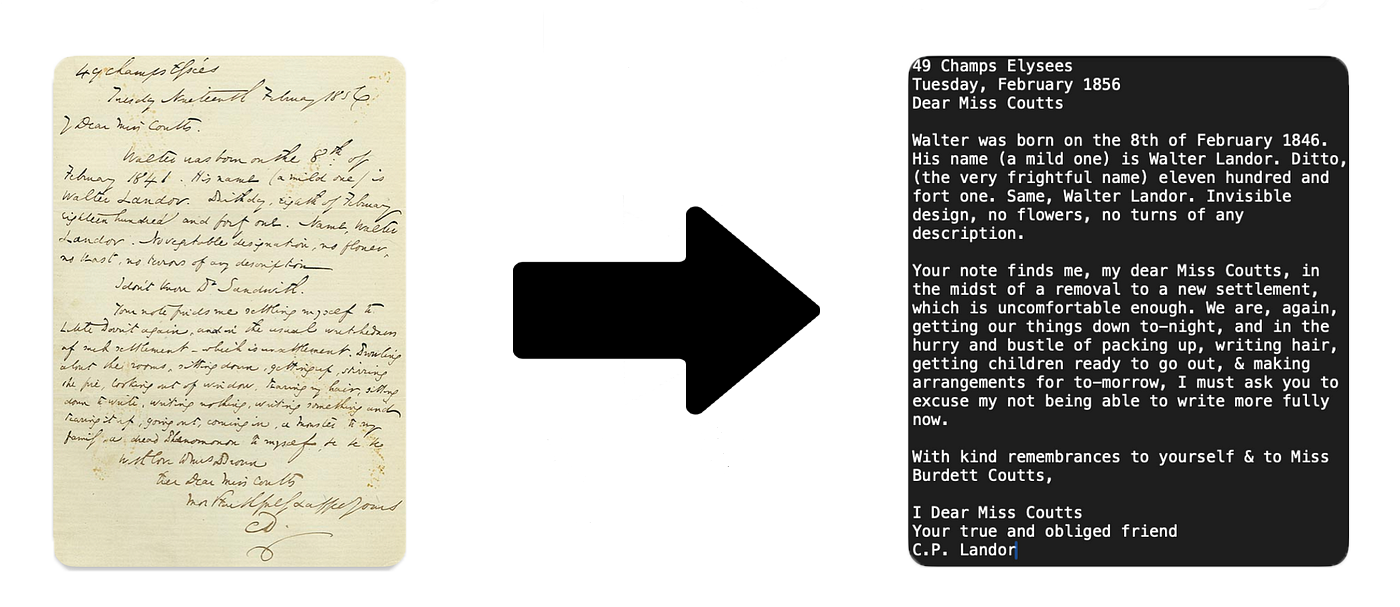 49 Champs Elysées
Tuesday Nineteenth February 1856
My Dear Miss Coutts.
Walter was born on the 8th of
February 1841. His name (a mild one) is
Walter Landor. Birthday, eighth of February
eighteen hundred and forty one. Name, Walter
Landor. No vegetable designation, no flower,
no beast, no turns of any description
I don't know Dr Sandwith.
Your note finds me settling myself to
Little Dorrit again, and in the usual wretchedness
of such settlement - which is unsettlement. Prowling
about the rooms, sitting down, getting up, stirring
the fire, looking out of window, tearing my hair, sitting
down to write, writing nothing, writing something and
tearing it up, going out, coming in, a monster to my
family, a dread Phenomenon to myself, &c &c &c
With love to Mrs Brown
Ever Dear Miss Coutts
Most Faithfully & affecy Yours
CD.
49 Champs Elysees
Tuesday, February 1856
Dear Miss Coutts
Walter was born on the 8th of February 1846.
His name (a mild one) is Walter Landor. Ditto,
(the very frightful name) eleven hundred and
fort one. Same, Walter Landor. Invisible
design, no flowers, no turns of any
description.
Your note finds me, my dear Miss Coutts, in
the midst of a removal to a new settlement,
which is uncomfortable enough. We are, again,
getting our things down to-night, and in the
hurry and bustle of packing up, writing hair,
getting children ready to go out, & making
arrangements for to-morrow, I must ask you to
excuse my not being able to write more fully
now.
With kind remembrances to yourself & to Miss
Burdett Coutts,
I Dear Miss Coutts
Your true and obliged friend
C.P. Landor